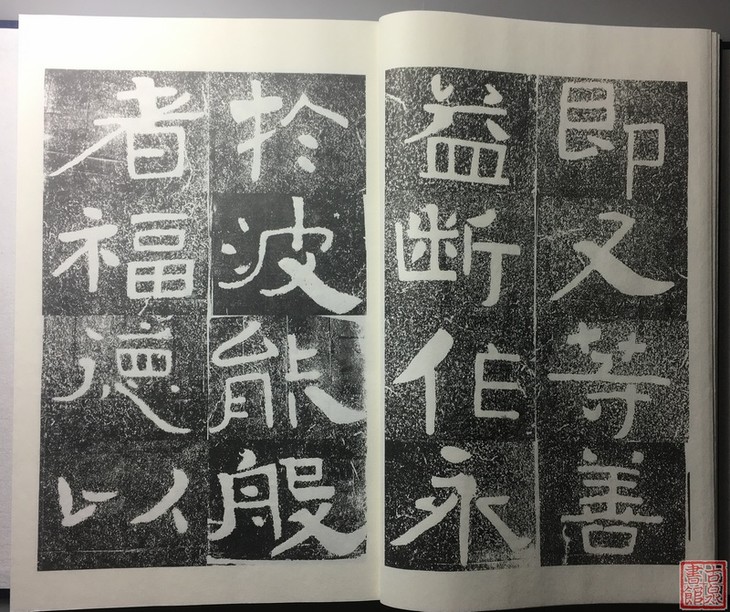 即又等善
益断作永
於波能般
者福德以
尚泉書館